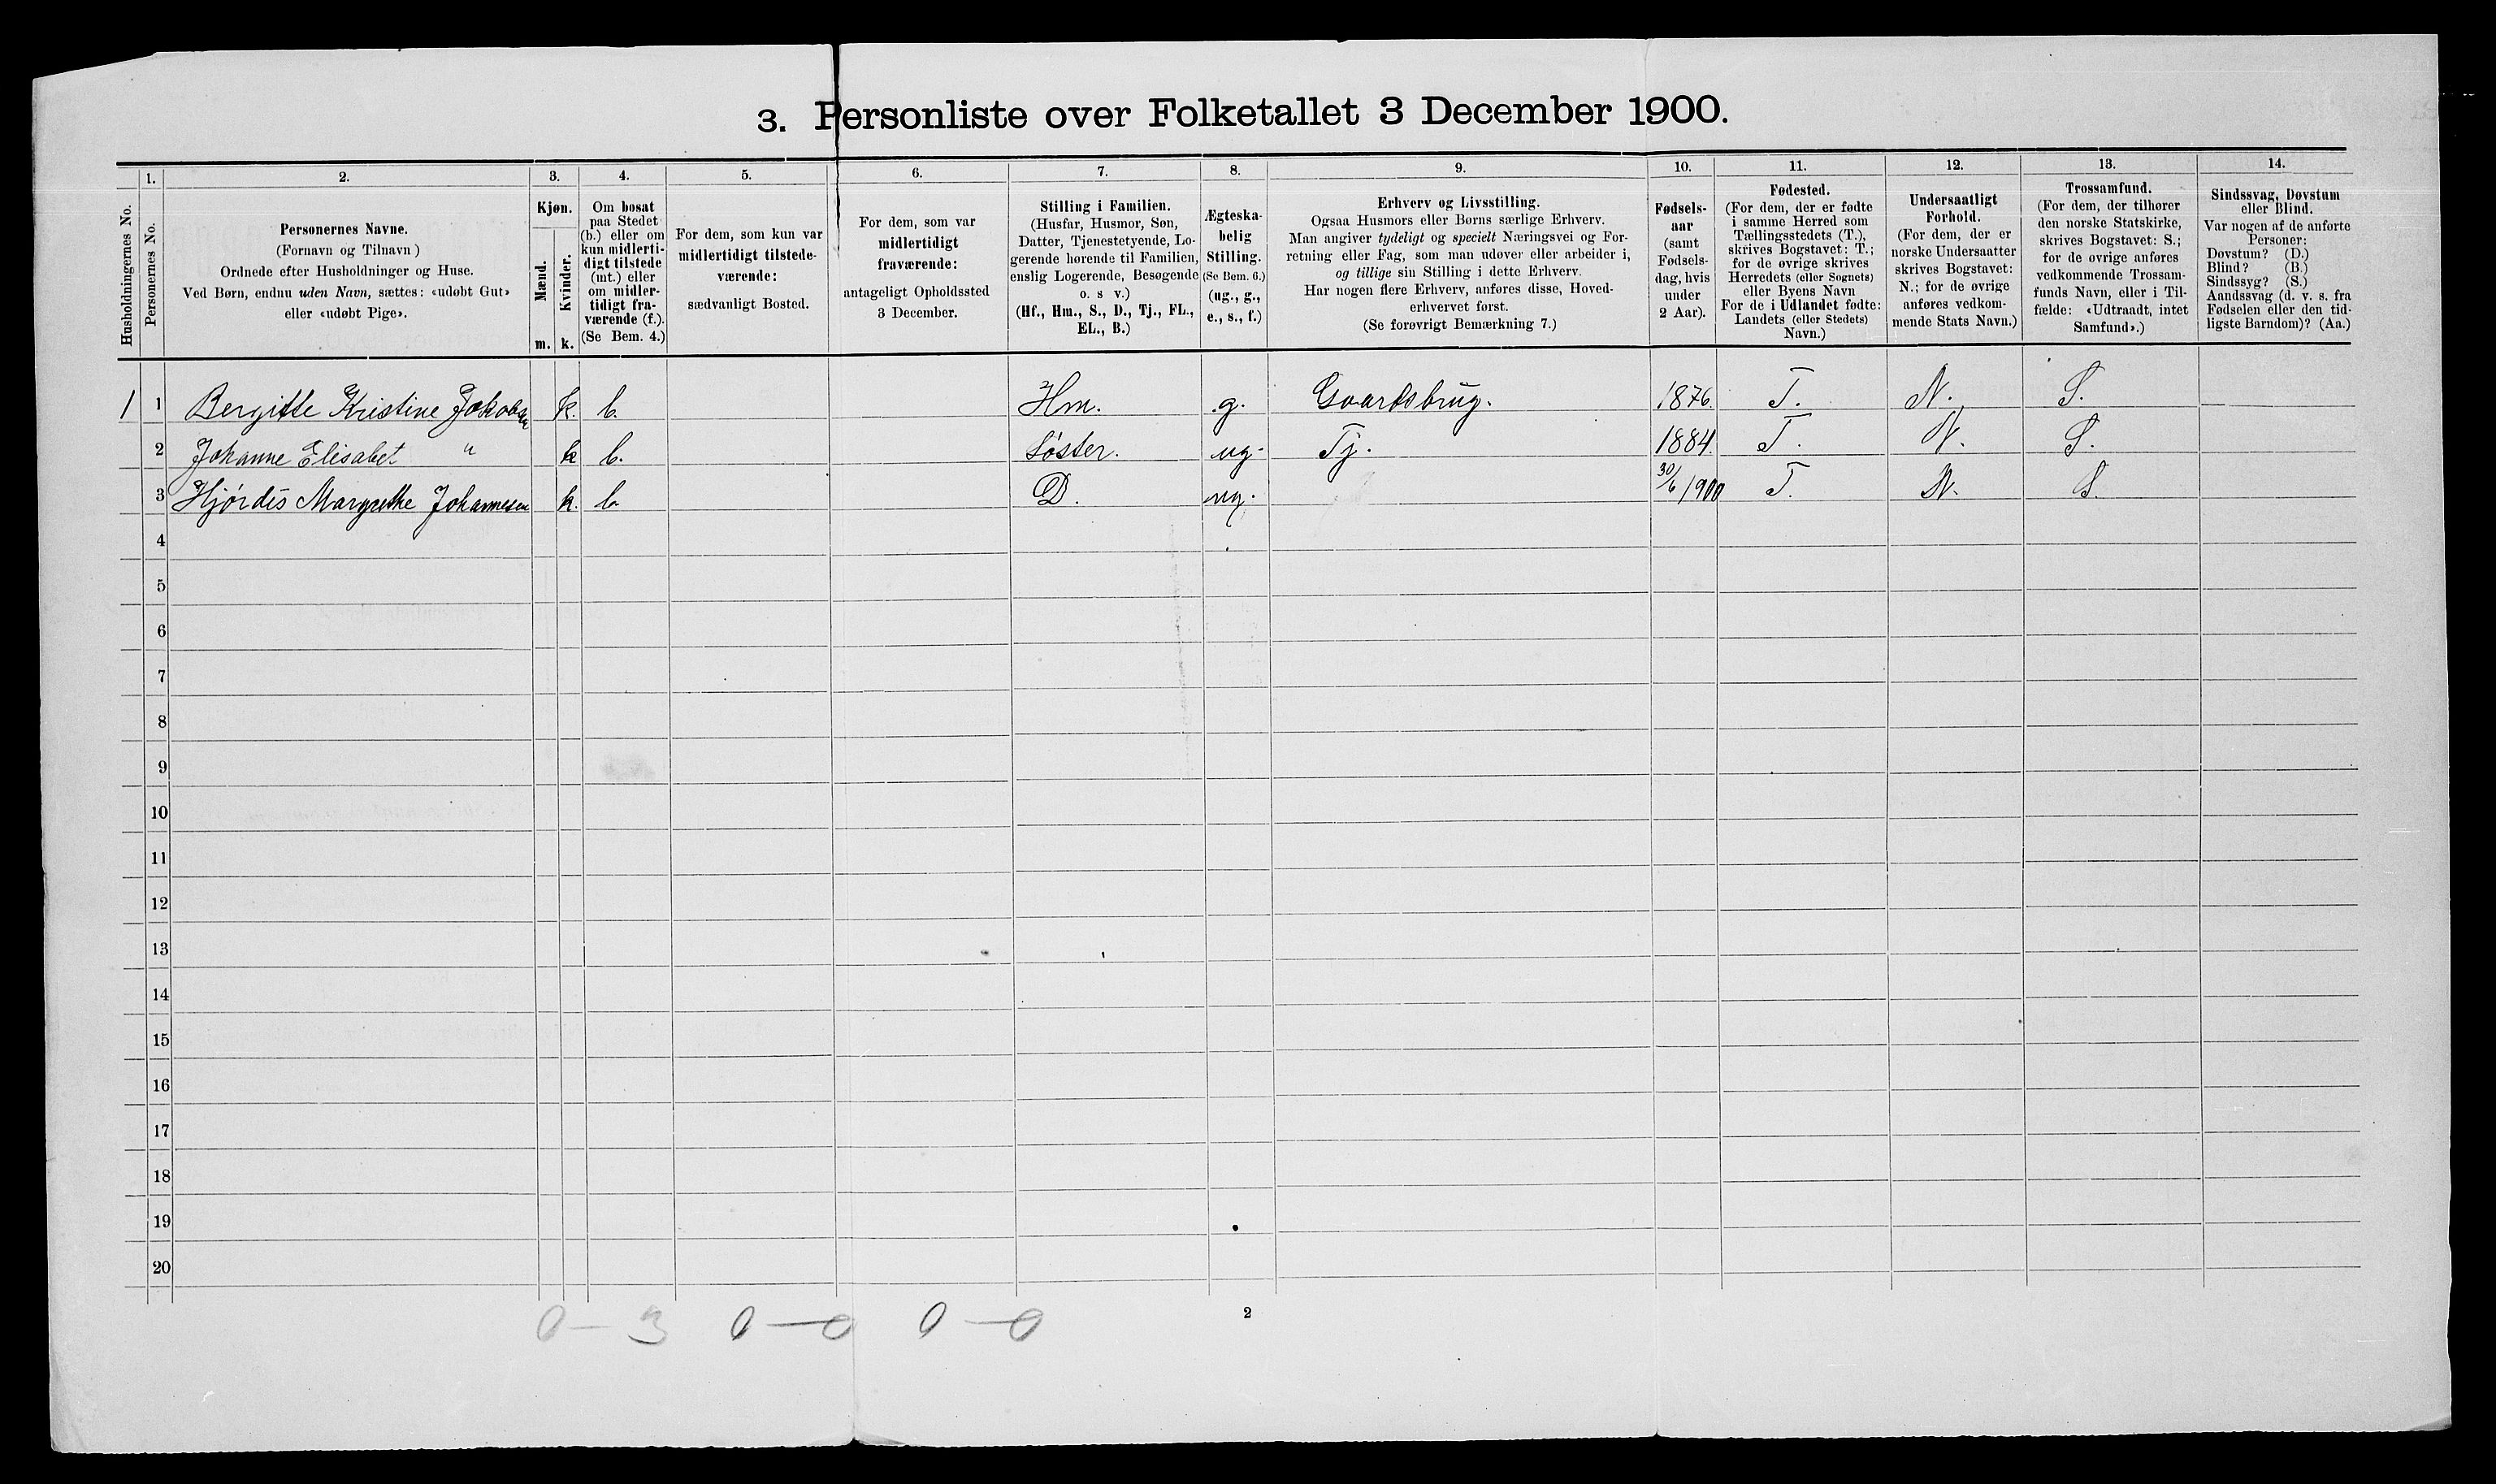 3. Personliste over Folketallet 3 December 1900.
Husholdningernes No.
1.
Personernes No.
2.
Personernes Navne.
(Fornavn og Tilnavn)
Ordnede efter Husholdninger og Huse.
Ved Børn, endnu uden Navn, sættes: «udøbt Gut»
eller «udøbt Pige».
3.
Kjøn.
Mænd.
Kvinder.
m. k.
4.
Om bosat
paa Stedet
(b.) eller om
kun midlerti-
digt tilstede
(mt.) eller
om midler-
tidigt fra-
værende (f.).
(Se Bem. 4.)
5.
For dem, som kun var
midlertidigt tilstede-
værende:
sædvanligt Bosted.
6.
For dem, som var
midlertidigt
fraværende:
antageligt Opholdssted
3 December.
7.
Stilling i Familien.
(Husfar, Husmor, Søn,
Datter, Tjenestetyende, Lo-
gerende hørende til Familien,
enslig Logerende, Besøgende
o. s v.)
(Hf., Hm., S., D., Tj., FL.,
EL., B.)
8.
Ægteska-
belig
Stilling.
(Se Bem. 6.)
(ug., g.,
e., s., f.)
9.
Erhverv og Livsstilling.
Ogsaa Husmors eller Børns særlige Erhverv.
Man angiver tydeligt og specielt Næringsvei og For-
retning eller Fag, som man udøver eller arbeider i,
og tillige sin Stilling i dette Erhverv.
Har nogen flere Erhverv, anføres disse, Hoved-
erhvervet først.
(Se forøvrigt Bemærkning 7.)
10.
Fødsels-
aar
(samt
Fødsels-
dag, hvis
under
2 Aar).
11.
Fødested.
(For dem, der er fødte
i samme Herred som
Tællingsstedets (T.),
skrives Bogstavet: T.;
for de øvrige skrives
Herredets (eller Sognets)
eller Byens Navn
For de i Udlandet fødte:
Landets (eller Stedets)
Navn.)
12.
Undersaatligt
Forhold.
(For dem, der er
norske Undersaatter
skrives Bogstavet:
N.; for de øvrige
anføres vedkom-
mende Stats Navn.)
13.
Trossamfund.
(For dem, der tilhører
den norske Statskirke,
skrives Bogstavet: S.;
for de øvrige anføres
vedkommende Trossam-
funds Navn, eller i Til-
fælde: «Udtraadt, intet
Samfund».)
14.
Sindssvag, Døvstum
eller Blind.
Var nogen af de anførte
Personer:
Døvstum? (D.)
Blind? (B.)
Sindssyg? (S.)
Aandssvag (d. v. s. fra
Fødselen eller den tid-
ligste Barndom)? (Aa.)
1 1 Bergitte Kristine k. b. Hm. g. Gaardsbrug. 1876. T. N. S.
2 Johanne Elisabet " k b. Søster. ug. Tj. 1884. T. N. S.
3 Hjørdis Margrethe Johannesen k. b. D. ug. 30/6 1900 T. N. S.
4
5
6
7
8
9
10
11
12
13
14
15
16
17
18
19
20
0—3 0—0 0—0
2